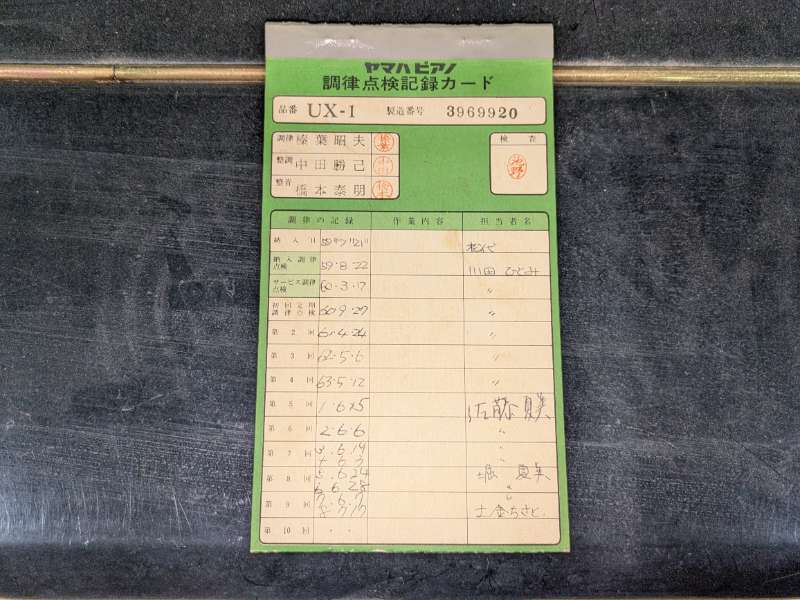 ヤマハピアノ
調律点検記録カード
品番 UX-1 製造番号 3969920
調律 榛葉昭夫 検査
整調 中田勝己
整音 橋本泰明
調律の記録 作業内容 担当者名
納入日 59 7 21
納入調律点検 59・8・22 川田 ひとみ
サービス調律点検 60・3・17 〃
初回定期調律点検 60・9・27 〃
第2回 61・4・24 〃
第3回 62・5・6 〃
第4回 63・5・12 〃
第5回 1・6・15 佐藤 夏美
第6回 2・6・6 〃
第7回 3・6・19 〃
第8回 5・6・24 堀 夏美
6・6・28 〃
第9回 7・6・7
8・7・17 土金ちさと
第10回 ・ ・